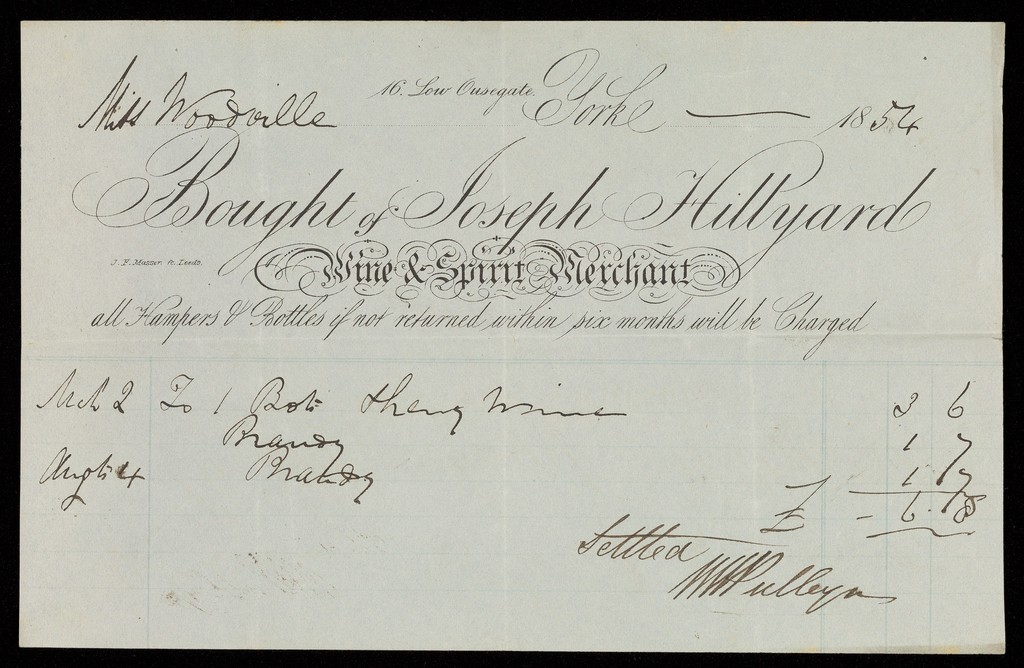 16. Low Ousegate.
Miss Woodville Yorke — 1854
Bought of Joseph Hillyard
J. F. Masser, Sc. Leeds.
Wine & Spirit Merchant
all Hampers & Bottles if not returned within six months will be Charged
Mch 2 To 1 Bots Sherry Wine 3 6
Brandy 1 7
Augt 4 Brandy 1 7
£ - 6 8
Settled
WH Pulleyn